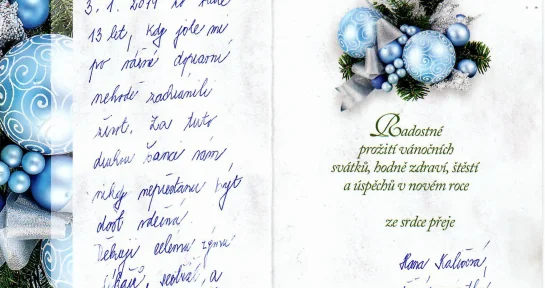 3. 1. 2019 to bude
13 let, kdy jste mi
po vážné dopravní
nehodě zachránili
život. Za tuto
druhou šanci vám
nikdy nepřestanu být
dost vděčná.
Děkuji celému týmu
lékařů, sester, a
Radostné
prožití vánočních
svátků, hodně zdraví, štěstí
a úspěchů v novém roce
ze srdce přeje
Hana